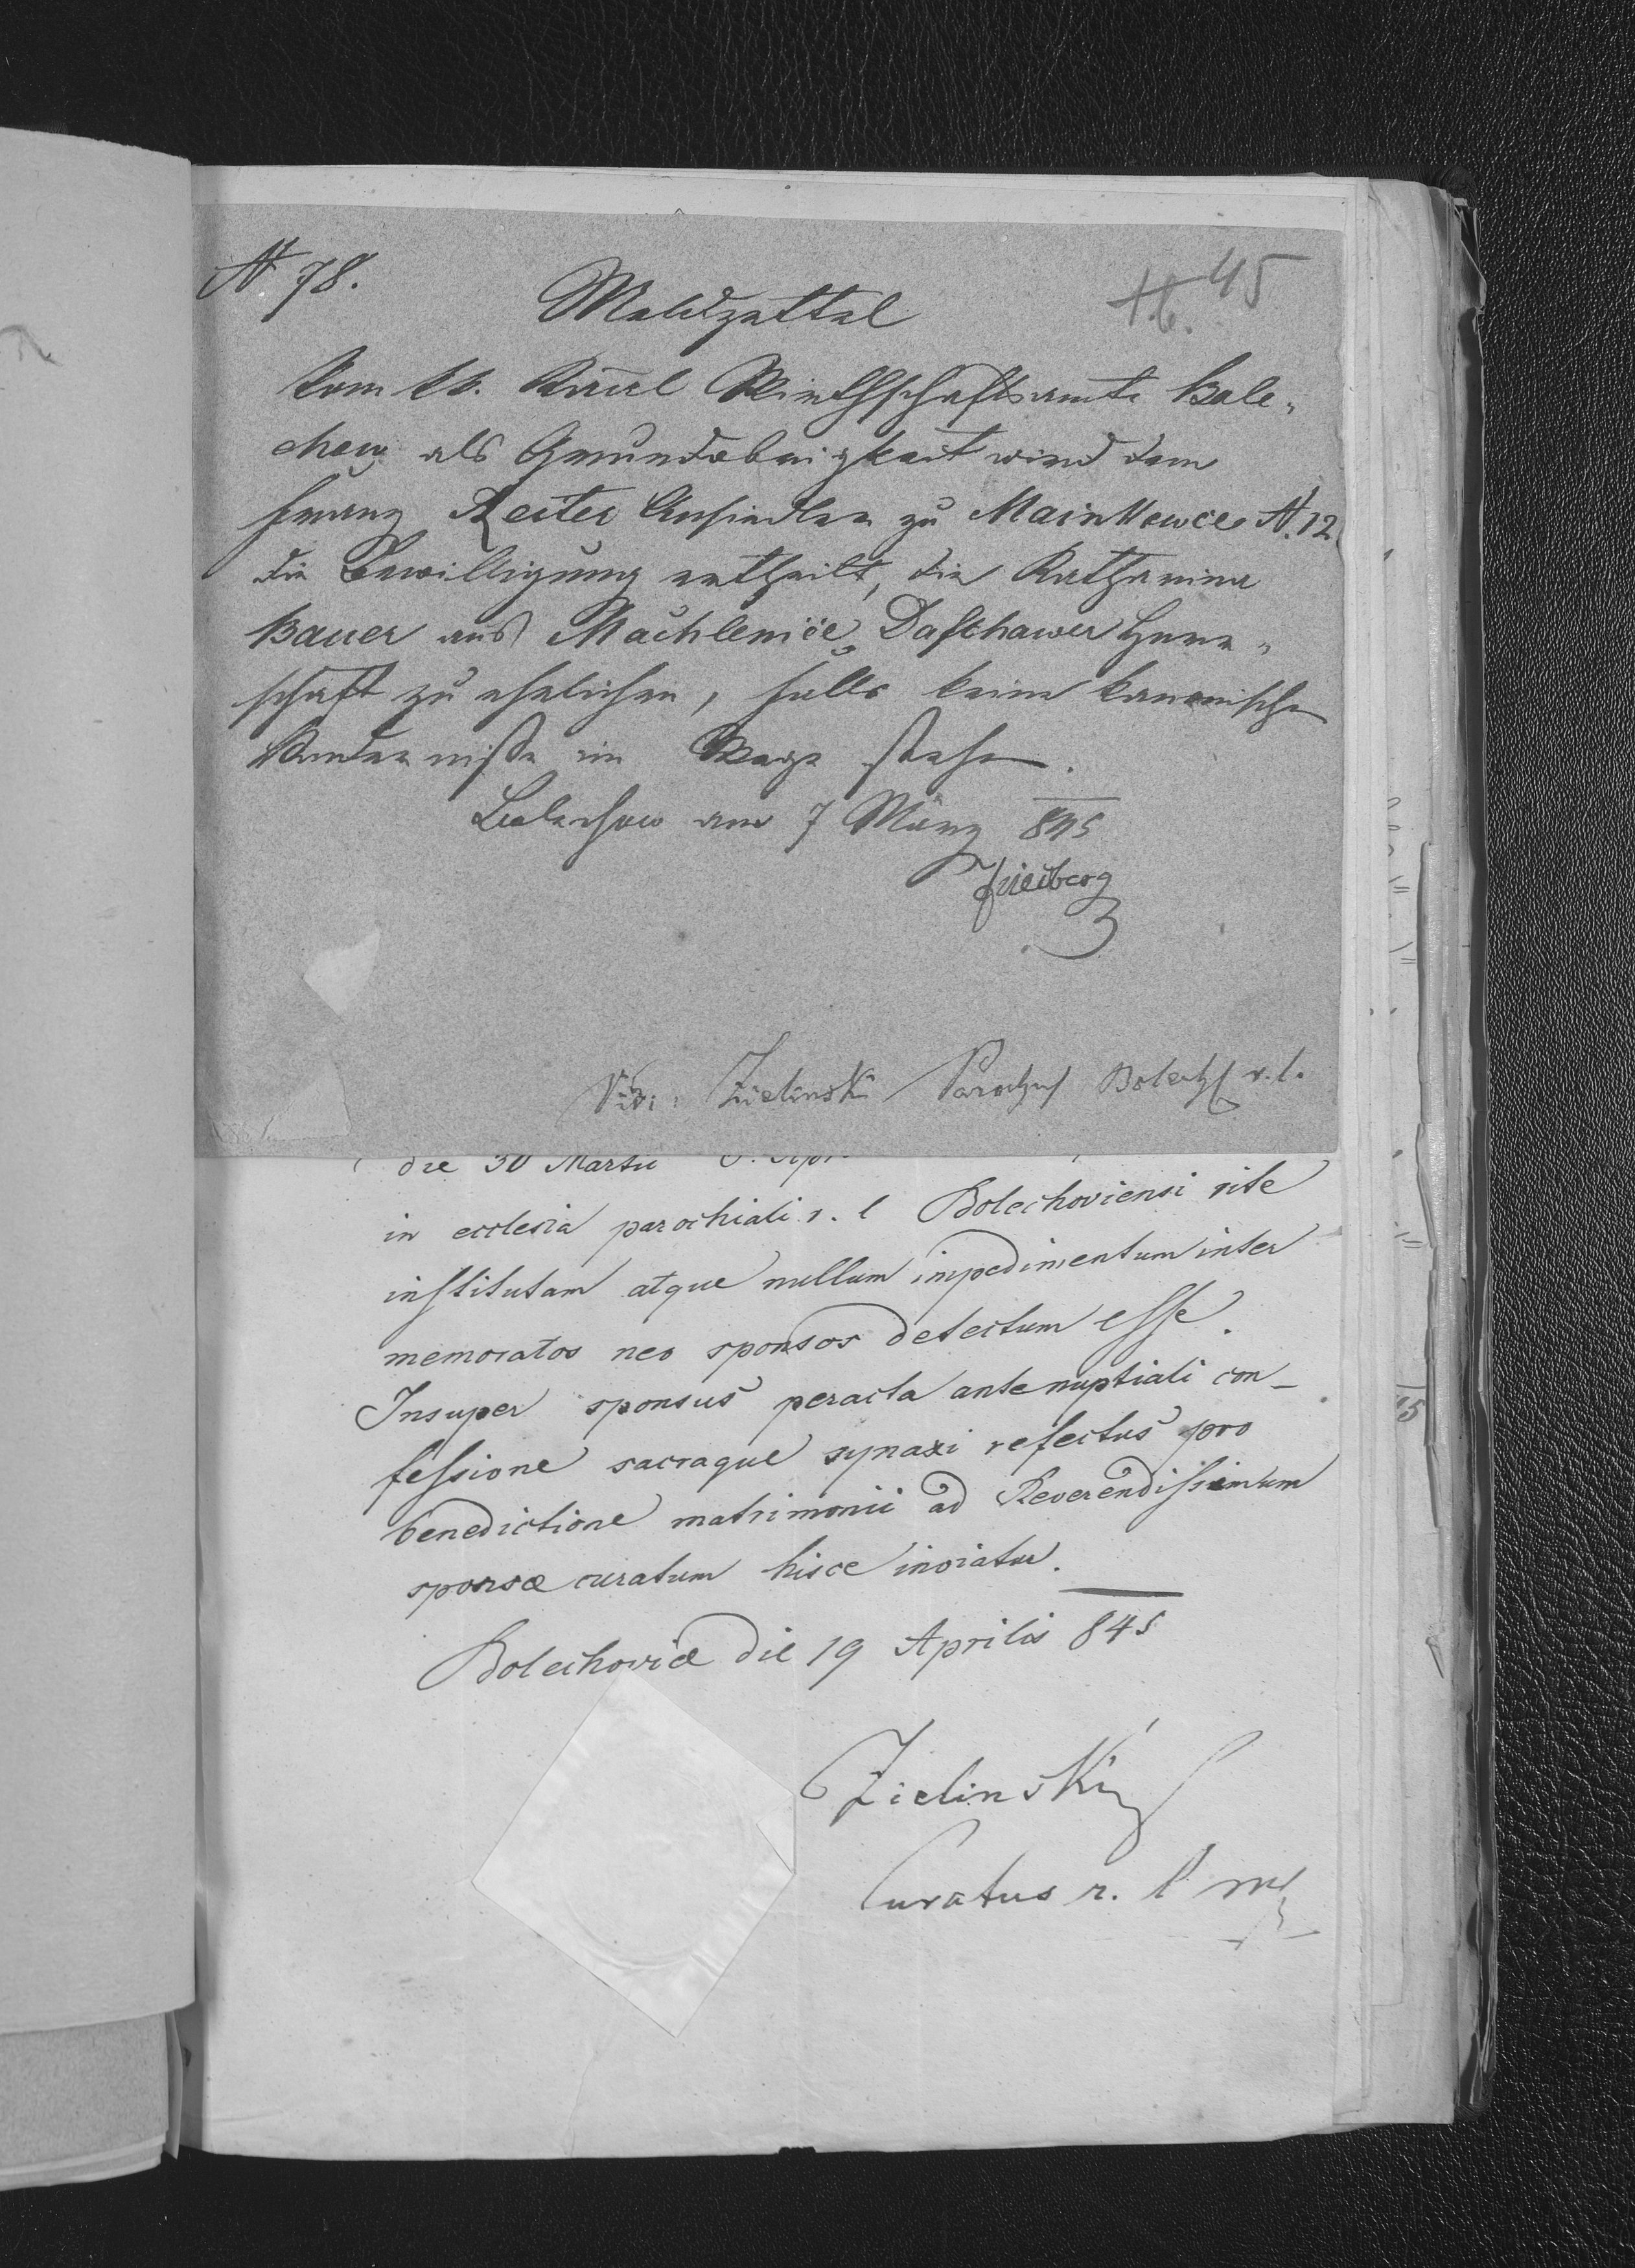 N 78.
45
Meldzettel
Vom kk. Kaal Wirthschaftsamte Bole„
chow als Grundobrigkeit wird dem
Franz Reiter Ansiedler zu Mainkowce N. 12
die Bewilligung ertheilt, die Katharina
Bauer aus Machlenice Daschawer Herr„
schaft zu ehelichen, falls keine kanonische
im Wege stehen.
Bolechow am 7 März 845
Vidi: Zielinski Parochus Bolech r. l.
die 30 Martii
in ecclesia parochiali r. l Bolechoviensi rite
institutam atque nullum impedimentum inter
memoratos neo sponsos detectum esse.
Insuper sponsus peracta antenuptiali con_
fessione sacraque synaxi refectus pro
benedictione matrimonii ad Reverendissimum
sponsæ curatum hisce inviatur.
Bolechoviæ die 19 Aprilis 845
Zielinski
Curatus r. l